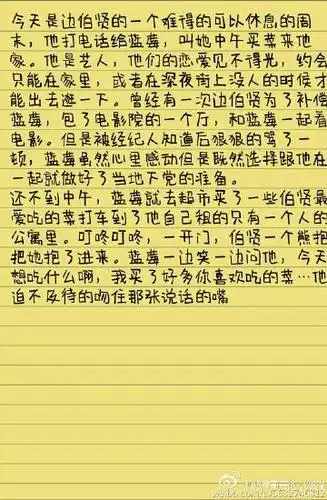 今天是边伯贤的一个难得的可以休息的周
末，他打电话给蓝莓，叫她中午买菜来他
家。他是艺人，他们的恋爱见不得光，约会
只能在家里，或者在深夜街上没人的时候才
能出去逛一下。曾经有一次边伯贤为了补偿
蓝莓，包了电影院的一个厅，和蓝莓一起看
电影。但是被经纪人知道后狠狠的骂了一
顿，蓝莓虽然心里感动但是既然选择跟他在
一起就做好了当地下党的准备。
还不到中午，蓝莓就去超市买了一些伯贤最
爱吃的菜打车到了他自己租的只有一个人的
公寓里。叮咚叮咚，一开门，伯贤一个熊抱
把她抱了进来。蓝莓一边笑一边问他，今天
想吃什么啊，我买了好多你喜欢吃的菜…他
迫不及待的吻住那张说话的嘴